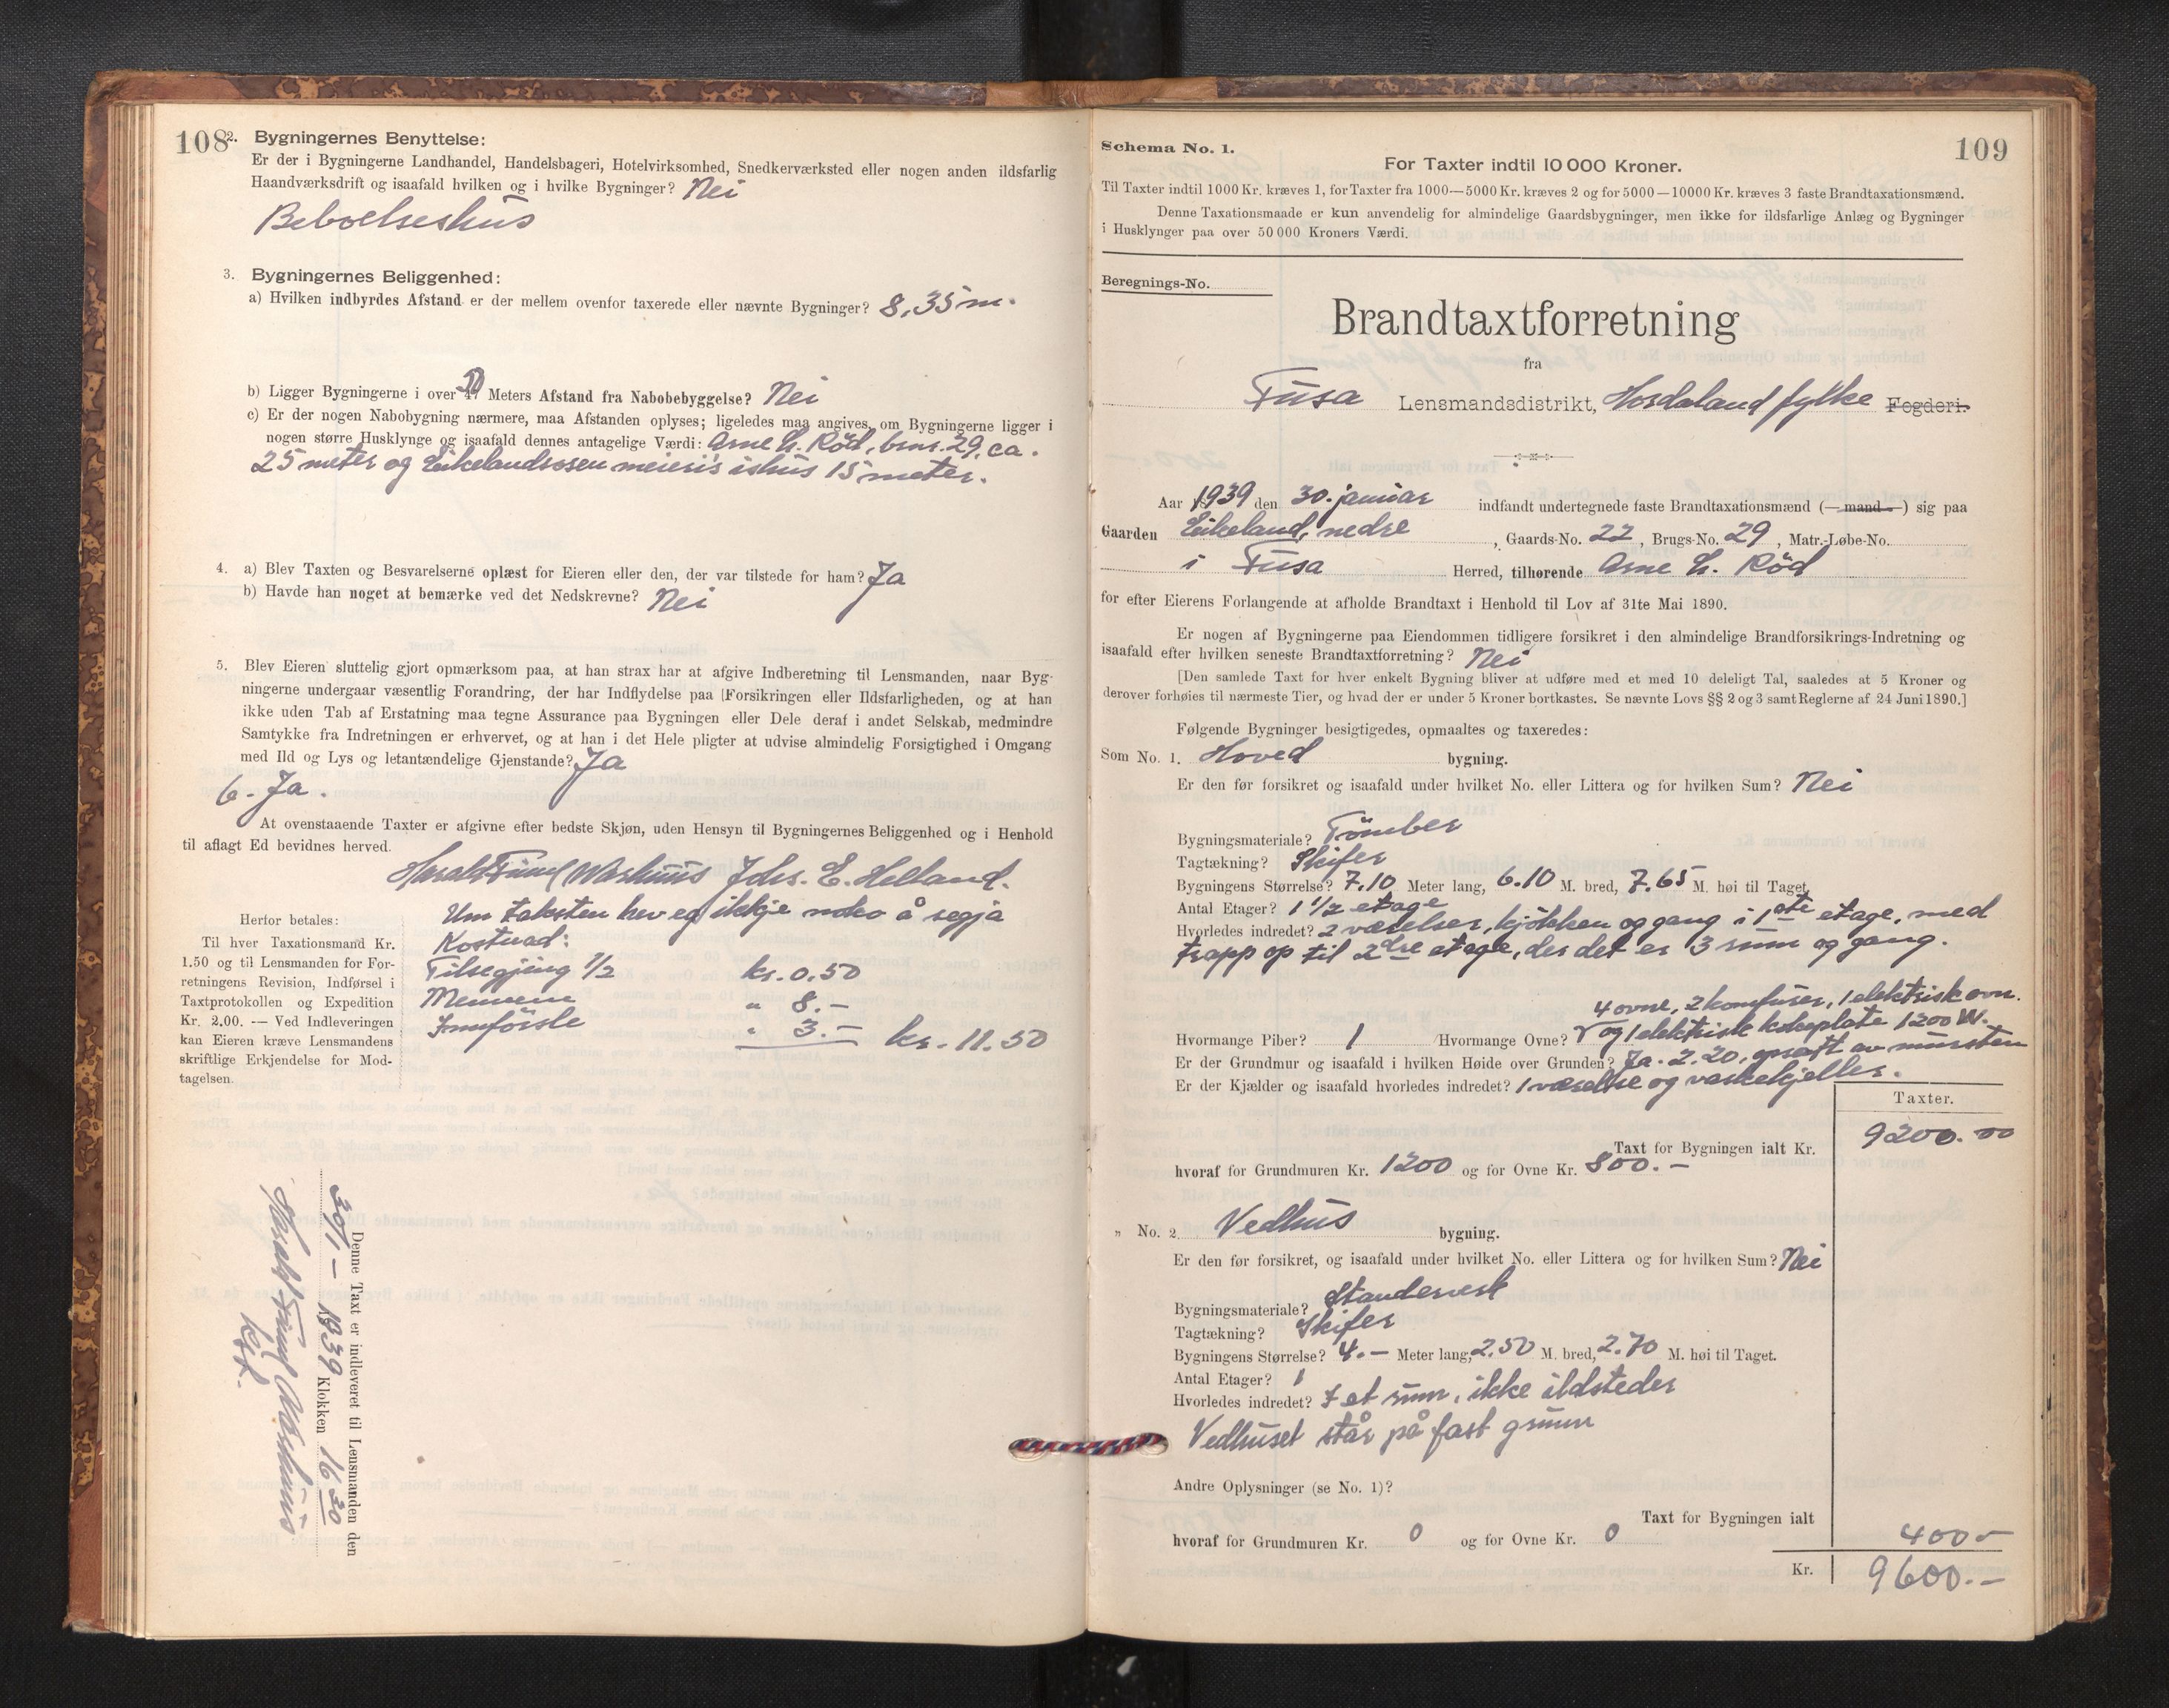 108
2. Bygningernes Benyttelse:
Er der i Bygningerne Landhandel, Handelsbageri, Hotelvirksomhed, Snedkerværksted eller nogen anden ildsfarlig
Haandværksdrift og isaafald hvilken og i hvilke Bygninger? Nei
Beboelseshus
3. Bygningernes Beliggenhed:
a) Hvilken indbyrdes Afstand er der mellem ovenfor taxerede eller nævnte Bygninger? 8,35 m.
b) Ligger Bygningerne i over Meters Afstand fra Nabobebyggelse? Nei
c) Er der nogen Nabobygning nærmere, maa Afstanden oplyses; ligeledes maa angives, om Bygningerne ligger i
nogen større Husklynge og isaafald dennes antagelige Værdi: Arne L. Röd, bnr. 29, ca.
25 meter og Eikelandsosen meieri's ishus 15 meter.
4. a) Blev Taxten og Besvarelserne oplæst for Eieren eller den, der var tilstede for ham? Ja
b) Havde han noget at bemærke ved det Nedskrevne? Nei
5. Blev Eieren sluttelig gjort opmærksom paa, at han strax har at afgive Indberetning til Lensmanden, naar Byg-
ningerne undergaar væsentlig Forandring, der har Indflydelse paa Forsikringen eller Ildsfarligheden, og at han
ikke uden Tab af Erstatning maa tegne Assurance paa Bygningen eller Dele deraf i andet Selskab, medmindre
Samtykke fra Indretningen er erhvervet, og at han i det Hele pligter at udvise almindelig Forsigtighed i Omgang
med Ild og Lys og letantændelige Gjenstande? Ja
6. Ja.
At ovenstaaende Taxter er afgivne efter bedste Skjøn, uden Hensyn til Bygningernes Beliggenhed og i Henhold
til aflagt Ed bevidnes herved.
Harald Johs. E. Helland.
Um taksten hev eg ikkje noko å segja
Kostnad:
Tilsegjing 1/2 kr. 0.50
Mennene " 8.-
Innförsle " 3.- kr. 11.50
Herfor betales:
Til hver Taxationsmand Kr.
1.50 og til Lensmanden for For-
retningens Revision, Indførsel i
Taxtprotokollen og Expedition
Kr. 2.00. — Ved Indleveringen
kan Eieren kræve Lensmandens
skriftlige Erkjendelse for Mod-
tagelsen.
Denne Taxt er indleveret til Lensmanden den
30/1 - 1939 Klokken 16 30
Harald
109
Schema No. 1.
For Taxter indtil 10 000 Kroner.
Til Taxter indtil 1000 Kr. kræves 1, for Taxter fra 1000—5000 Kr. kræves 2 og for 5000—10000 Kr. kræves 3 faste Brandtaxationsmænd.
Denne Taxationsmaade er kun anvendelig for almindelige Gaardsbygninger, men ikke for ildsfarlige Anlæg og Bygninger
i Husklynger paa over 50 000 Kroners Værdi.
Beregnings-No.
Brandtaxtforretning
fra
Fusa Lensmandsdistrikt, Hordaland fylke Fogderi.
Aar 1939 den 30. januar indfandt undertegnede faste Brandtaxationsmænd (—mand—) sig paa
Gaarden Eikeland, nedre, Gaards-No. 22, Brugs-No. 29, Matr.-Løbe-No.
i Fusa Herred, tilhørende Arne L. Röd
for efter Eierens Forlangende at afholde Brandtaxt i Henhold til Lov af 31te Mai 1890.
Er nogen af Bygningerne paa Eiendommen tidligere forsikret i den almindelige Brandforsikrings-Indretning og
isaafald efter hvilken seneste Brandtaxtforretning? Nei
[Den samlede Taxt for hver enkelt Bygning bliver at udføre med et med 10 deleligt Tal, saaledes at 5 Kroner og
derover forhøies til nærmeste Tier, og hvad der er under 5 Kroner bortkastes. Se nævnte Lovs §§ 2 og 3 samt Reglerne af 24 Juni 1890.]
Følgende Bygninger besigtigedes, opmaaltes og taxeredes:
Som No. 1. Hoved bygning.
Er den før forsikret og isaafald under hvilket No. eller Littera og for hvilken Sum? Nei
Bygningsmateriale? Tömber
Tagtækning? Skifer
Bygningens Størrelse? 7.10 Meter lang, 6.10 M. bred, 7.65 M. høi til Taget.
Antal Etager? 1 1/2 etage
Hvorledes indret? 2 værelser, kjökken og gang i 1ste etage, med
trapp op til 2dre etage, der det er 3 rum og gang.
4 ovne, 2 komfurer, 1 elektrisk ovn.
Hvormange Piber? 1 Hvormange Ovne? og 1 elektrisk kokeplate 1200 W.
Er der Grundmur og isaafald i hvilken Høide over Grunden? Ja. 2.20, opsatt av mursten
Er der Kjælder og isaafald hvorledes indredet? 1 værelse og vaskekjeller.
Taxter.
Taxt for Bygningen ialt Kr. 9200.00
hvoraf for Grundmuren Kr. 1200 og for Ovne Kr. 800.-
" No. 2. Vedhus bygning.
Er den før forsikret, og isaafald under hvilket No. eller Littera og for hvilken Sum? Nei
Bygningsmateriale? Standerverk
Tagtækning? Skifer
Bygningens Størrelse? 4.- Meter lang, 2.50 M. bred, 2.70 M. høi til Taget.
Antal Etager? 1
Hvorledes indredet? I et rum, ikke ildsteder
Vedhuset står på fast grunn
Andre Oplysninger (se No. 1)?
Taxt for Bygningen ialt
hvoraf for Grundmuren Kr. 0 og for Ovne Kr. 0 400-
Kr. 9600.-